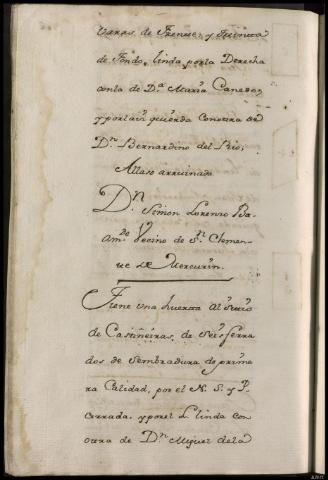 varas de Frente, y treinta
de fondo, linda por la Derecha
con la de D.ª Maria Canedo,
y por la izquierda con otra de
D.n Bernardino del Rio,
Allase arruinada
D.n Simon Lorenzo
Vecino de S.n Clemen-
te de Mercurin.
Tiene una huerta al sitio
de Castiñeiras, de seis ferra
dos de sembradura de prime
ra Calidad, por el N. S. y P.
cerrada, y por el L. linda con
otra de D.n Miguel de la